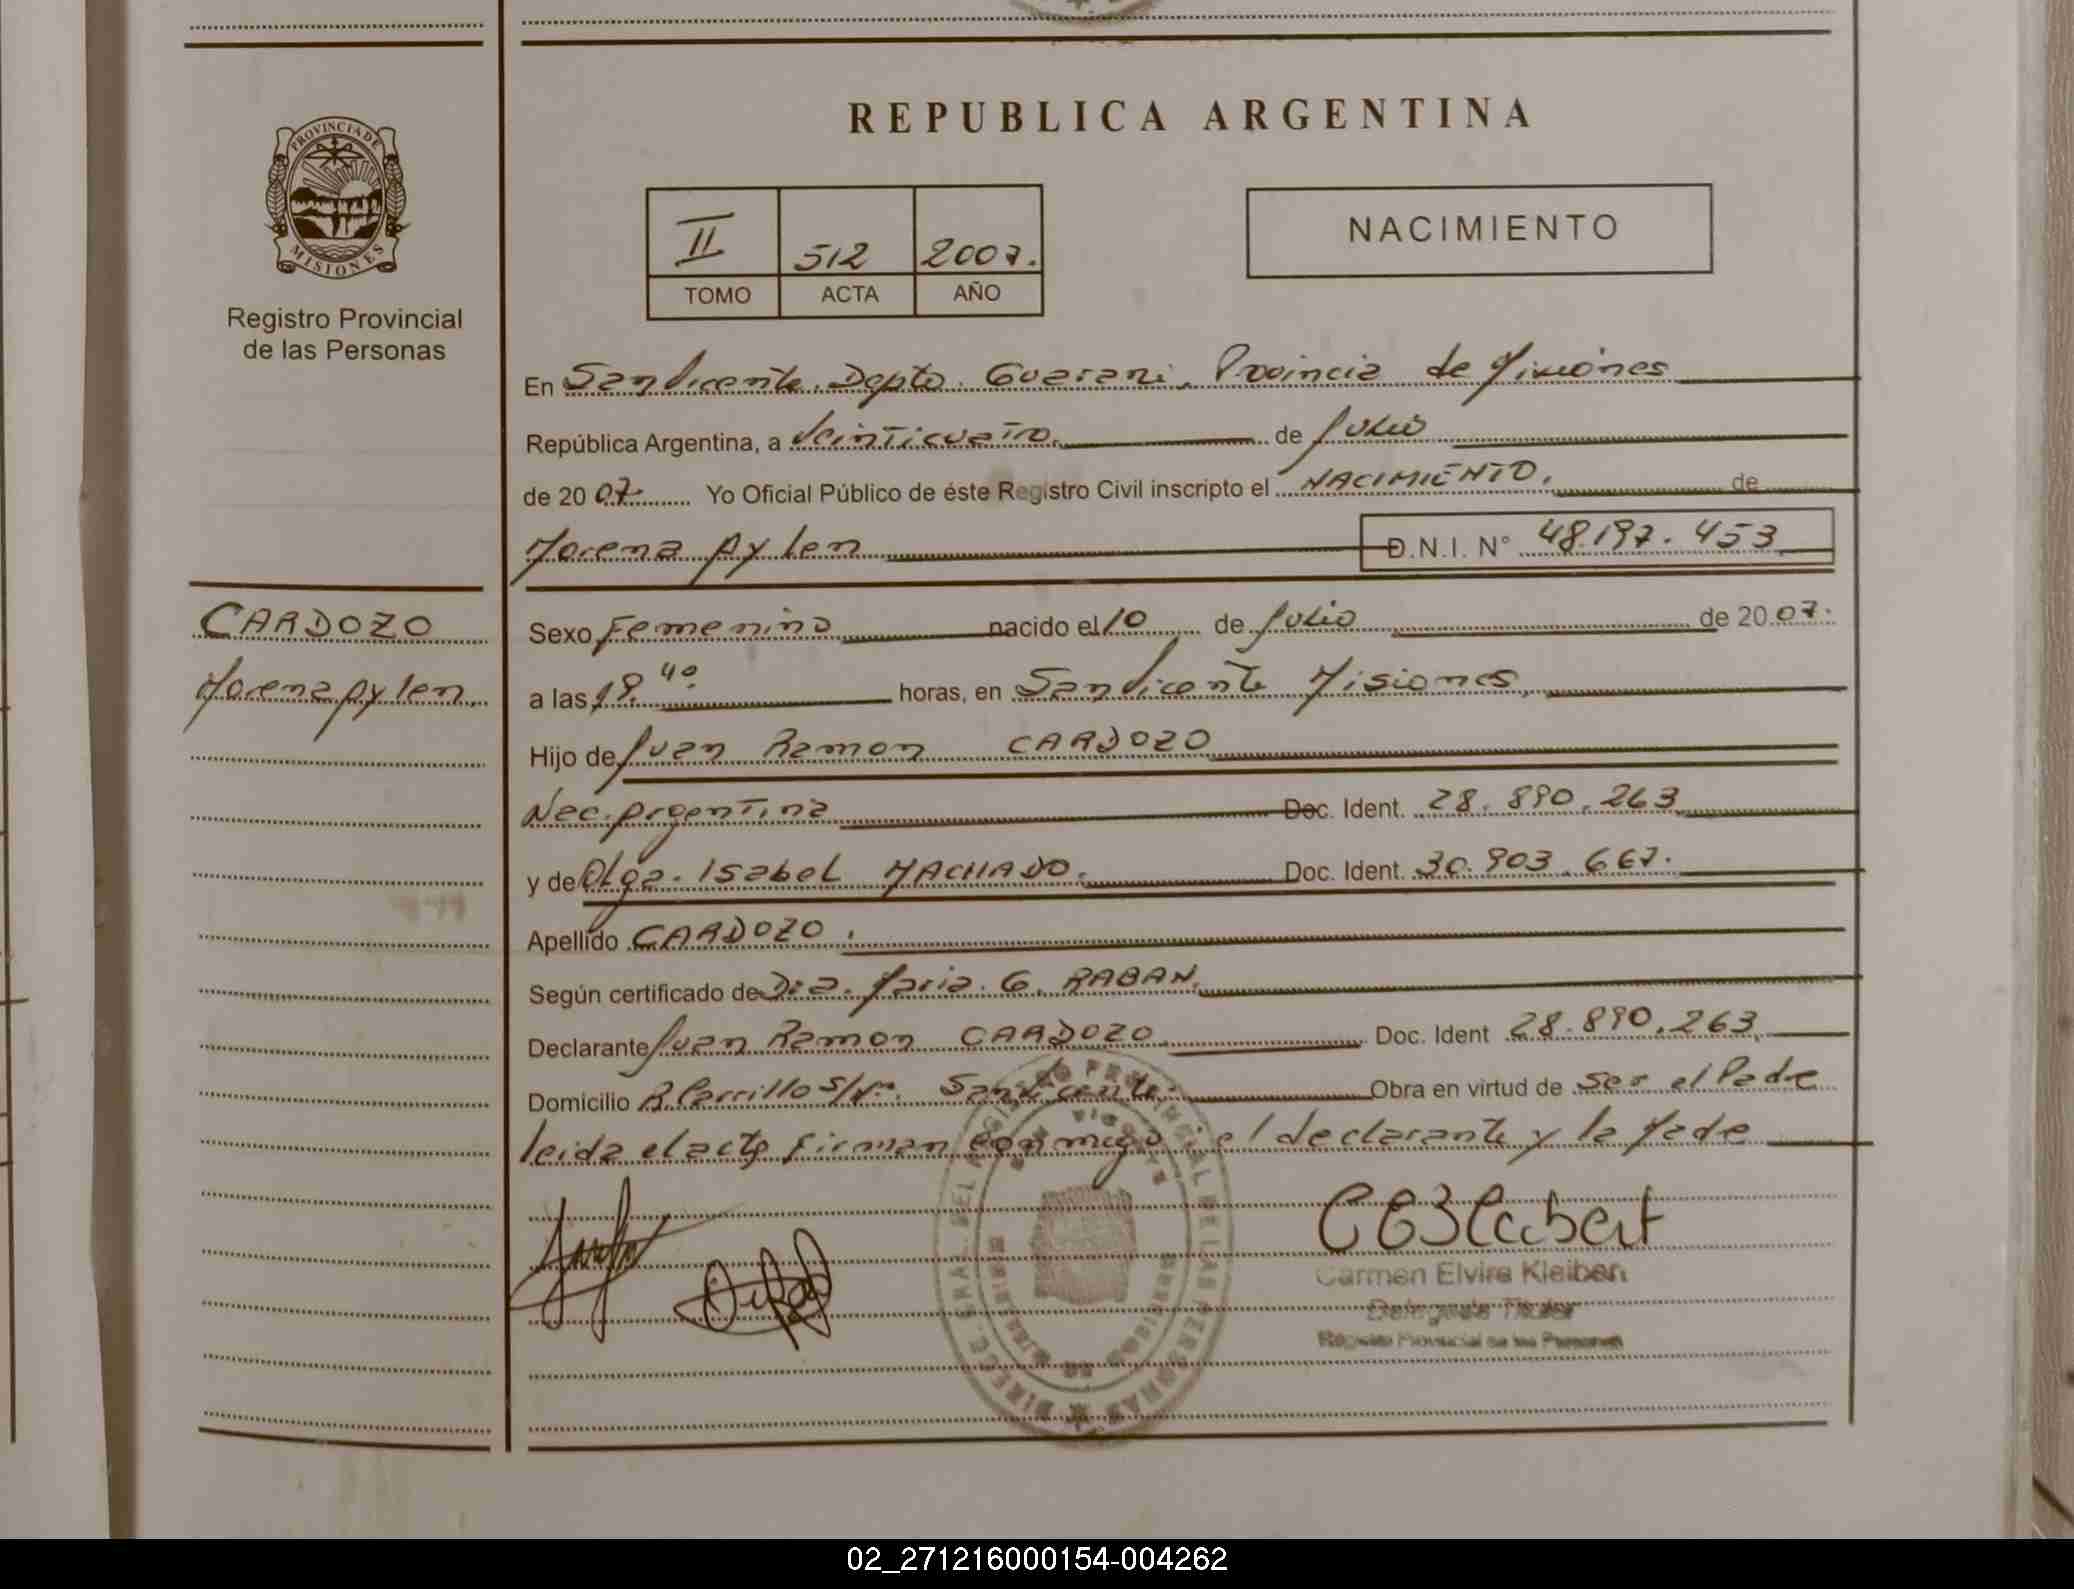 REPUBLICA ARGENTINA
PROVINCIA DE
MISIONES
Registro Provincial
de las Personas
II 512 2007.
TOMO ACTA AÑO
NACIMIENTO
En San Vicente. Depto. Guarani, Provincia de Misiones
República Argentina, a Veinticuatro. de Julio
de 20 07. Yo Oficial Público de éste Registro Civil inscripto el NACIMIENTO. de
Morena Aylen D.N.I. N° 48.197.453
CARDOZO
Morena Aylen.
Sexo Femenino nacido el 10 de Julio de 20 07.
a las 18.40. horas, en San Vicente Misiones.
Hijo de Juan Ramon CARDOZO
Nac. Argentina Doc. Ident. 28.890.263
y de Olga. Isabel MACHADO. Doc. Ident. 30.903.667.
Apellido CARDOZO.
Según certificado de Dra. Maria. G. RABAN.
Declarante Juan Ramon CARDOZO. Doc. Ident 28.890.263
Domicilio R. Carrillo s/nº. San Vicente. Obra en virtud de ser el Padre
leida el acta firman conmigo el declarante y la Madre
Carmen Elvira Kleibert
Delegada Titular
Registro Provincial de las Personas
02_271216000154-004262